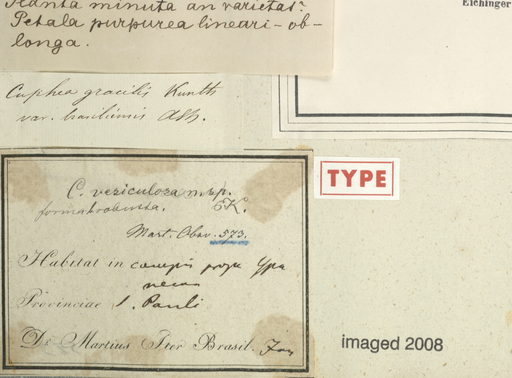 Planta minuta an varietas?
Petala purpurea lineari-ob-
longa.
Eichinger
Cuphea gracilis Kunth
var. brasiliensis
TYPE
C. vesiculosa n. sp.
forma robusta. EK.
Mart. Obsv. 573.
Habitat in campis prope Ypa
nema
Provinciae S. Pauli
Dr Martius Iter Brasil. Jan
imaged 2008